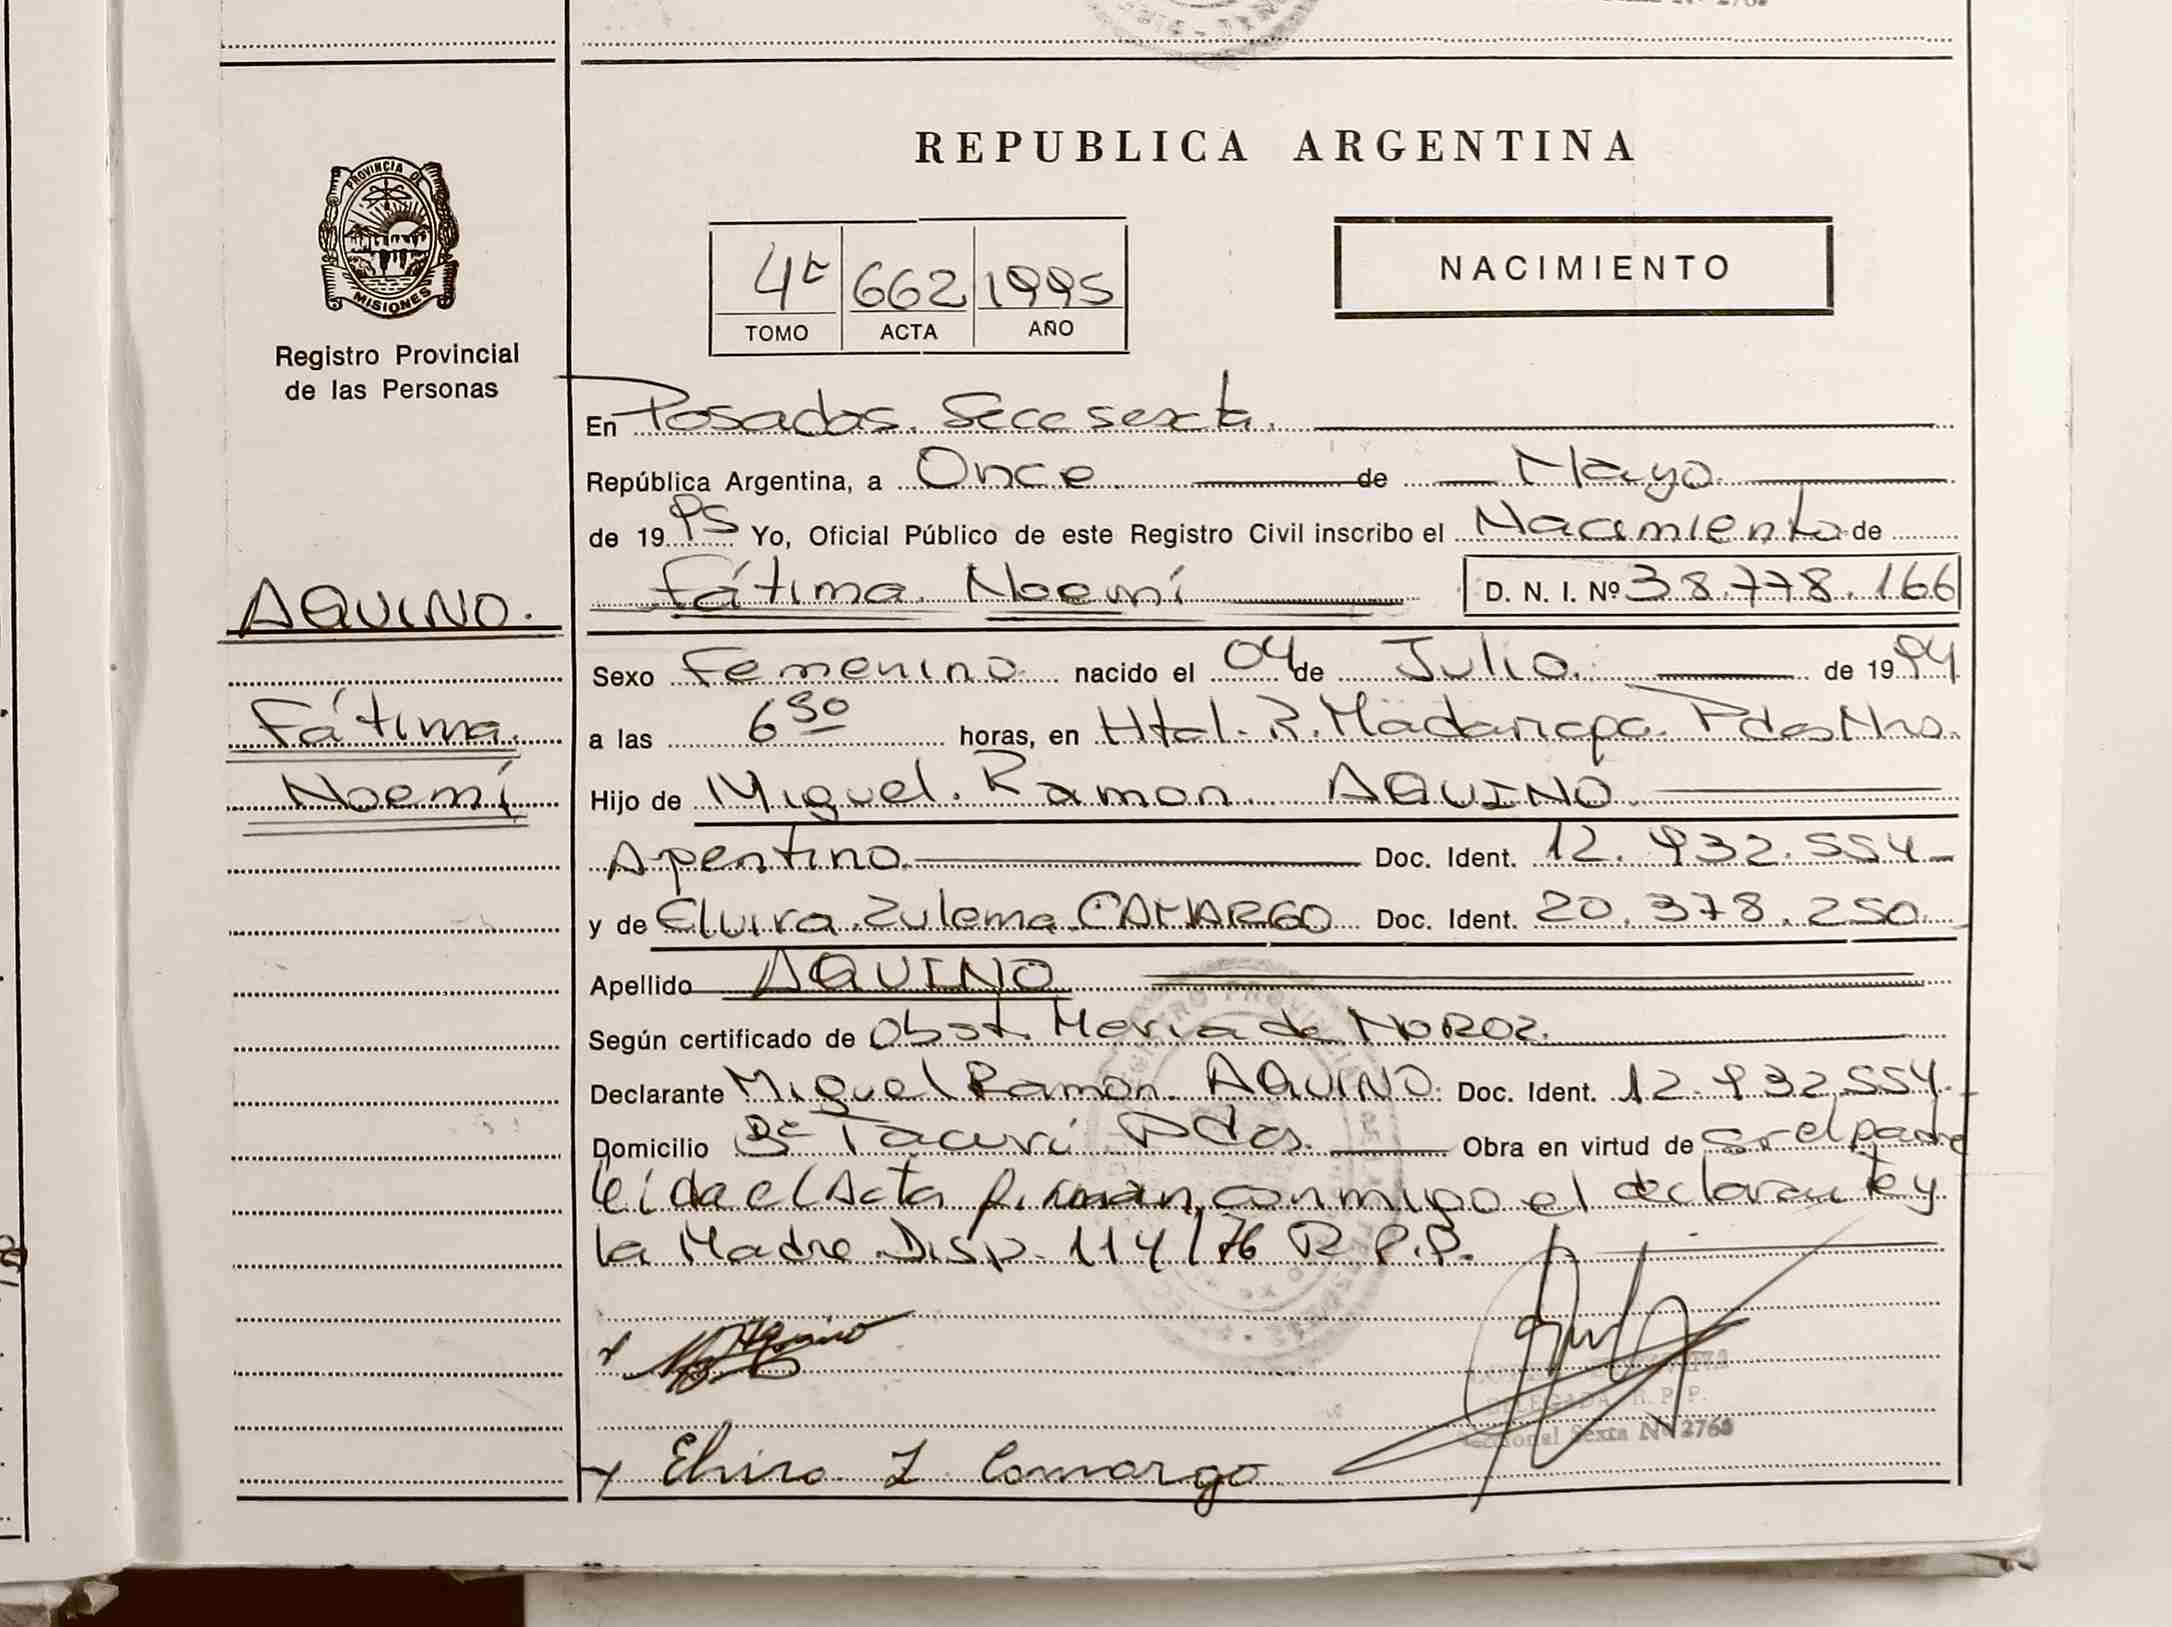 REPUBLICA ARGENTINA
PROVINCIA DE
MISIONES
Registro Provincial
de las Personas
4º 662 1995
TOMO ACTA AÑO
NACIMIENTO
En Posadas. Secc sexta.
República Argentina, a Once de Mayo
de 1995 Yo, Oficial Público de este Registro Civil inscribo el Nacimiento de
AQUINO.
Fátima
Noemí
Fátima Noemí D. N. I. Nº 38.778.166
Sexo Femenino nacido el 04 de Julio de 1994
a las 6 30 horas, en Htal. R. Madariaga. Pdas Mnes.
Hijo de Miguel Ramon AQUINO
Argentino Doc. Ident. 12.932.554
y de Elvira Zulema CAMARGO Doc. Ident. 20.378.250
Apellido AQUINO
Según certificado de Obst. Maria de
Declarante Miguel Ramon AQUINO Doc. Ident. 12.932.554
Domicilio Bº Tacurí Pdas. Obra en virtud de ser el padre
leída el Acta firman conmigo el declarante y
la Madre Disp. 114/76 R.P.P.
Elvira Z Camargo
DELEGADA R. P. P.
Seccional Sexta Nº 2760